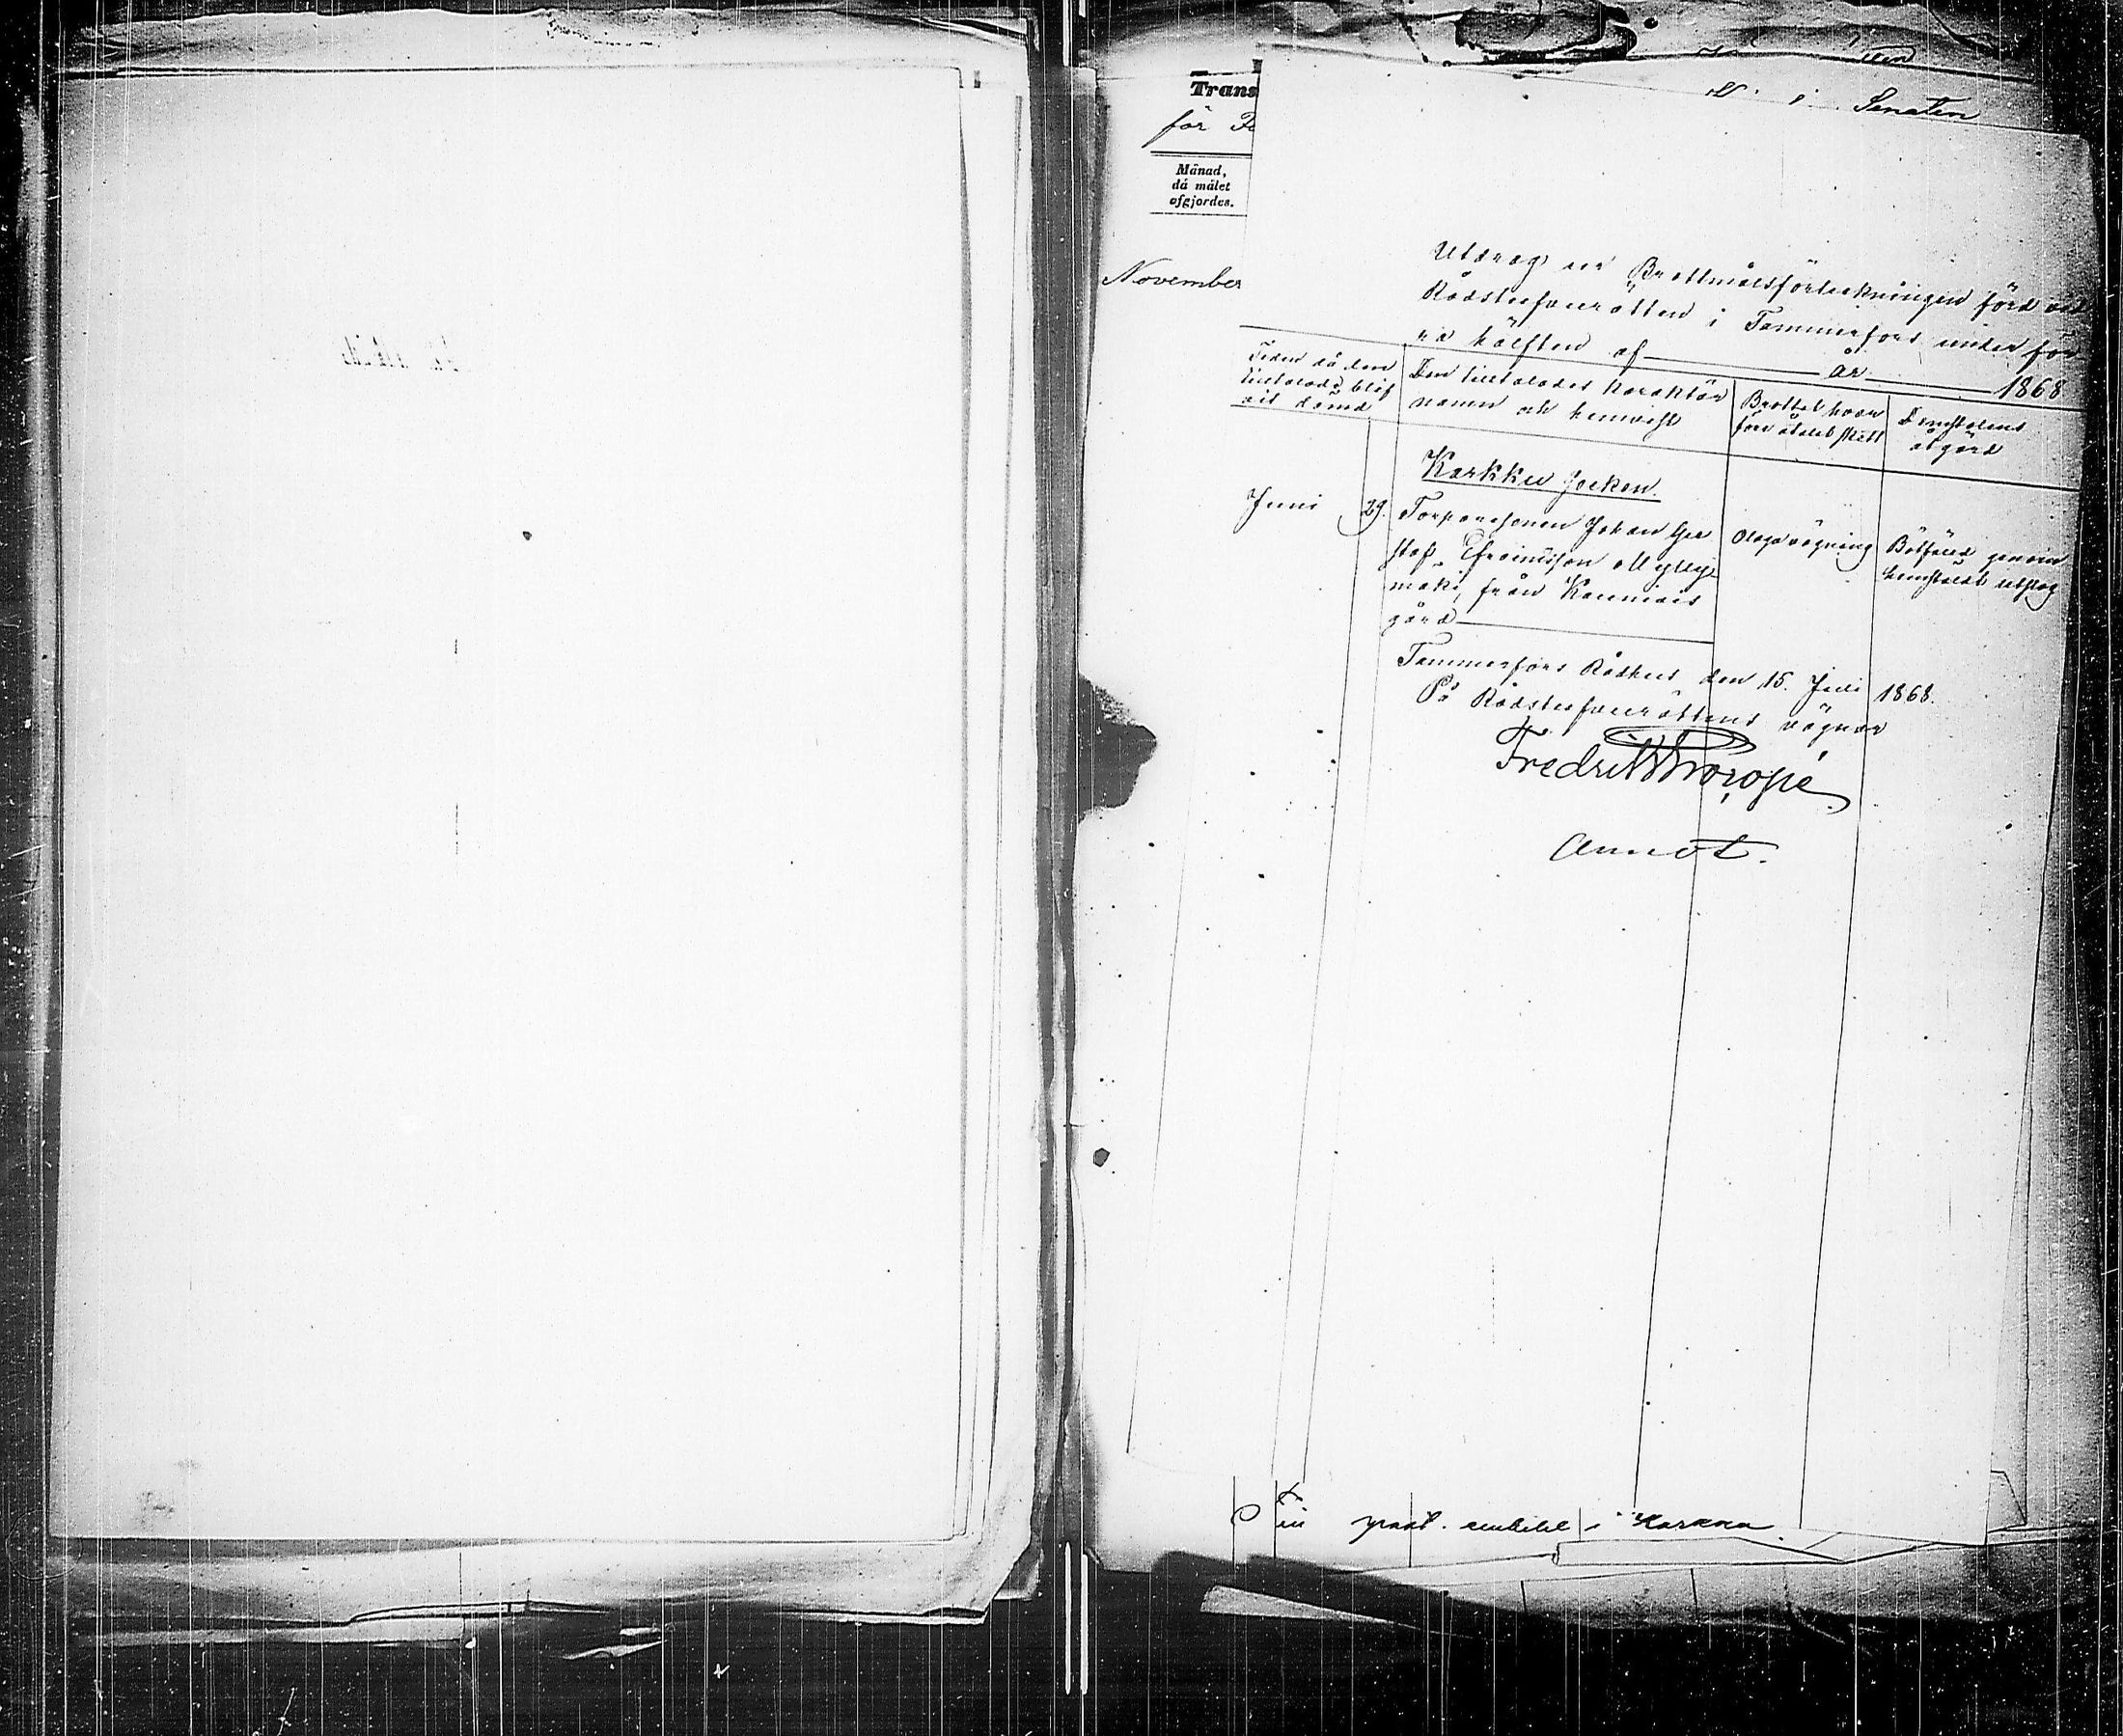 Senaten
Trans
för
Månad,
då målet
afgjordes.
November
Utdrag ur Brottmålsförteckningen förd vid
Rådstufvurätten i Tammerfors under för
ra hälften af år 1868
Tiden då den
tilltalade blif
vit dömd
Den tilltalades karaktär
namn och hemvist
Brottet hvar
före åtalet skett
Domstolens
åtgärd
Karkku Socken.
Juni 29.
Torparesonen Johan Gu
staf Efraimsson Mylly
mäki, från Kauniais
gård
Olaga vägning
Bötfäld genom
hemstäldt utslag
Tammerfors Rådhus den 15. Juli 1868.
På Rådstufvurättens vägnar
Fredrik Procopé
Annot.
i Karkku